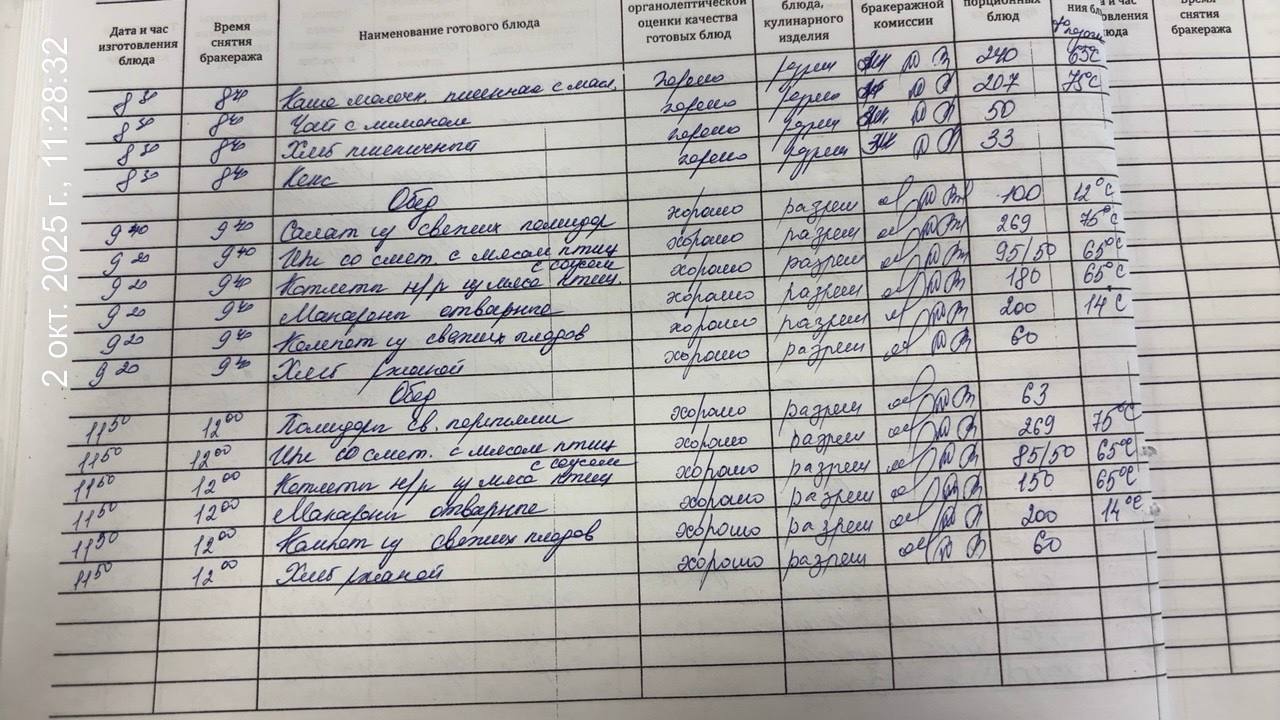 2 окт. 2025 г., 11:28:32
Дата и час изготовления блюда | Время снятия бракеража | Наименование готового блюда | органолептической оценки качества готовых блюд | блюда, кулинарного изделия | бракеражной комиссии | порционных блюд
8 30 | 8 40 | Каша молочн. пшенная с масл. | хорошо | разреш | 240 | 65°C
8 30 | 8 40 | Чай с лимоном | хорошо | разреш | 207 | 75°C
8 30 | 8 40 | Хлеб пшеничный | хорошо | разреш | 50
8 30 | 8 40 | Кекс | хорошо | разреш | 33
Обед
9 40 | Салат из свежих помидор | хорошо | разреш | 100 | 12°C
9 20 | 9 40 | Щи со смет. с мясом птиц | хорошо | разреш | 269 | 75°C
9 20 | 9 40 | Котлеты н/р из мяса птиц. с соусом | хорошо | разреш | 95/50 | 65°C
9 20 | 9 40 | Макароны отварные | хорошо | разреш | 180 | 65°C
9 20 | 9 40 | Компот из свежих плодов | хорошо | разреш | 200 | 14°C
9 20 | 9 40 | Хлеб ржаной | хорошо | разреш | 60
Обед
11 50 | 12 00 | Помидоры св. порциями | хорошо | разреш | 63
11 50 | 12 00 | Щи со смет. с мясом птиц | хорошо | разреш | 269 | 75°C
11 50 | 12 00 | Котлеты н/р из мяса птиц с соусом | хорошо | разреш | 85/50 | 65°C
11 50 | 12 00 | Макароны отварные | хорошо | разреш | 150 | 65°C
11 50 | 12 00 | Компот из свежих плодов | хорошо | разреш | 200 | 14°C
11 50 | 12 00 | Хлеб ржаной | хорошо | разреш | 60
снятия бракеража